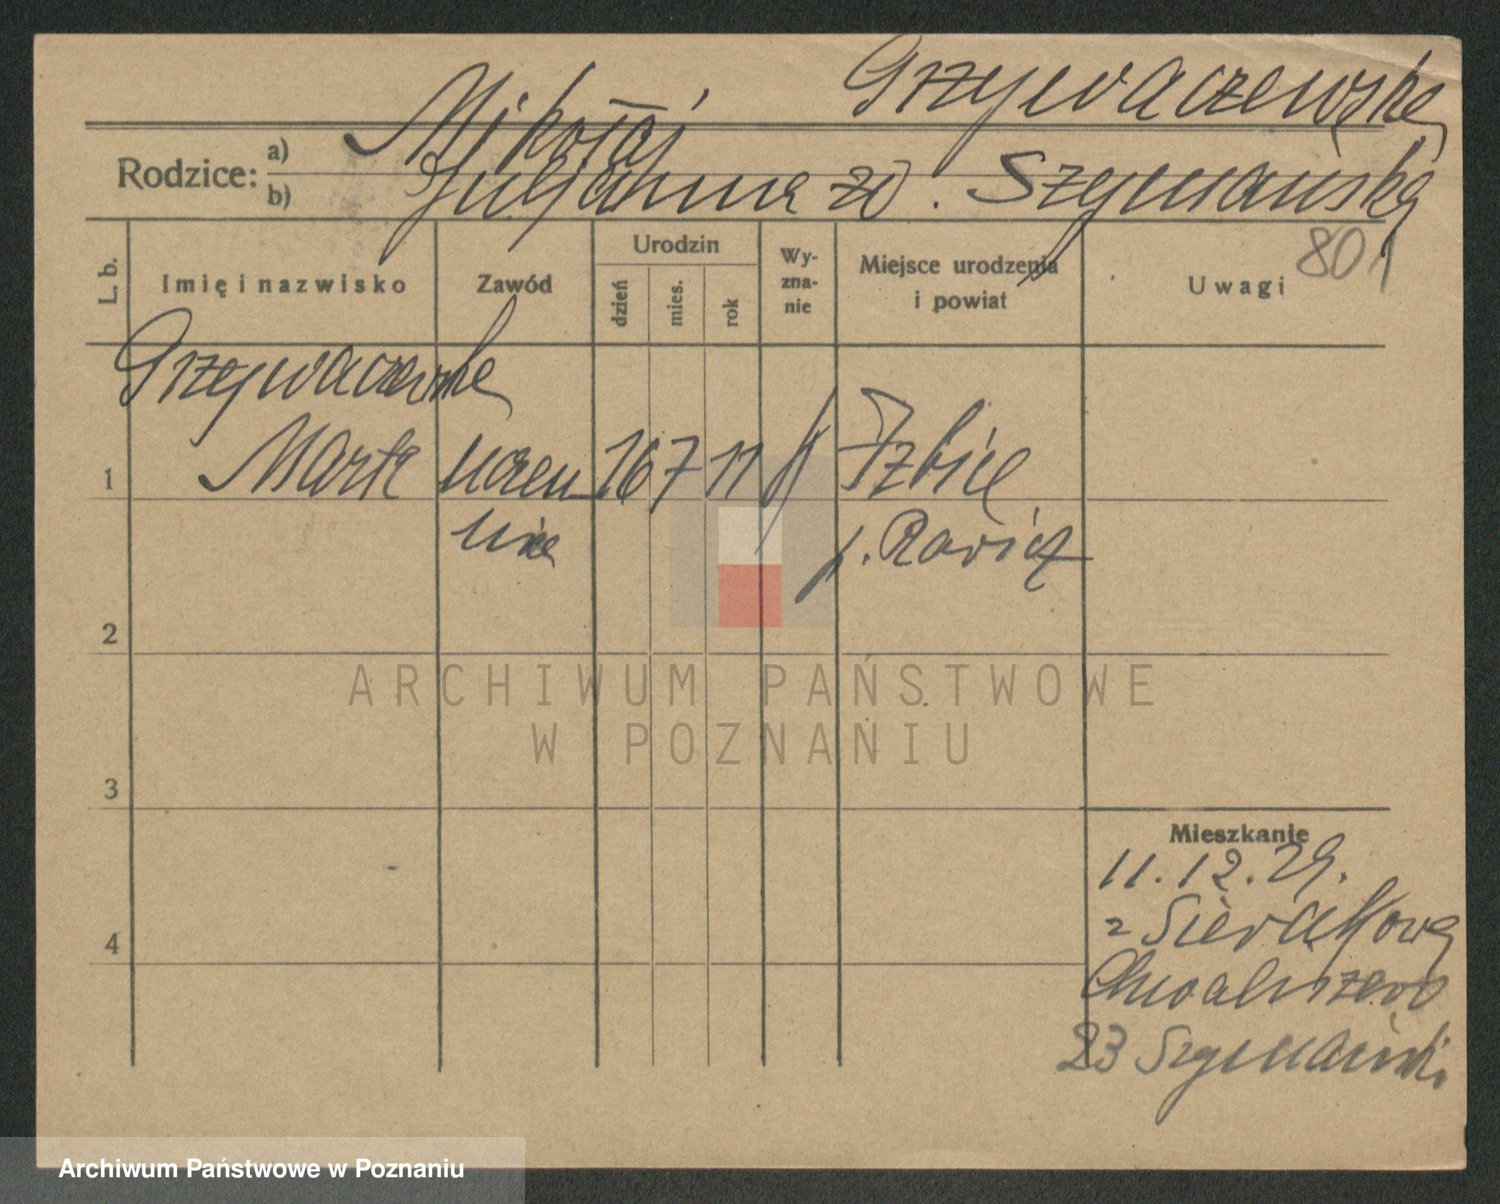 Grzywaczewska
Mikołaj
Rodzice: a)
b) Juljanna zd. Szymańska
801
L. b. Imię i nazwisko Zawód Urodzin dzień mies. rok Wy-zna-nie Miejsce urodzenia i powiat Uwagi
Grzywaczewska
1 Marta uczen- 16 7 11 Izbice
nica p. Rawicz
2
ARCHIWUM PAŃSTWOWE
W POZNANIU
3
Mieszkanie
11.12.29.
z Sierakowa
4
Chwaliszewo
23 Szymański
Archiwum Państwowe w Poznaniu